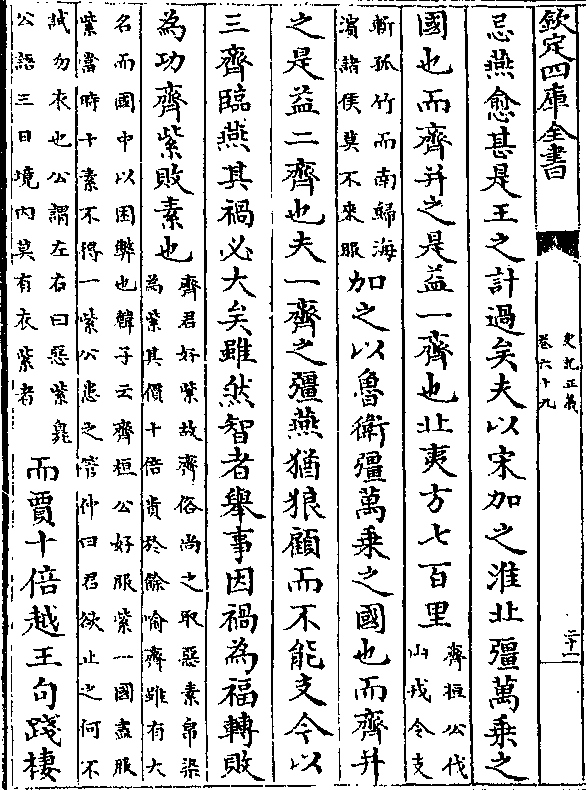 欽定四庫全書
史記正義
卷六十九
忌燕愈甚是王之計過矣夫以宋加之淮北彊萬乘之
國也而齊并之是益一齊也北夷方七百里
齊桓公伐
山戎令支
斬孤竹而南歸海
濱諸侯莫不來服
加之以魯衛彊萬乘之國也而齊并
之是益二齊也夫一齊之彊燕猶狼顧而不能支今以
三齊臨燕其禍必大矣雖然智者舉事因禍為福轉敗
為功齊紫敗素也
齊君好紫故齊俗尚之取惡素帛染
為紫其價十倍貴於餘喻齊雖有大
名而國中以困弊也韓子云齊桓公好服紫一國盡服
紫當時十素不得一紫公患之管仲曰君欲止之何不
試勿衣也公謂左右曰惡紫臭
公語三日境內莫有衣紫者
而賈十倍越王句踐棲